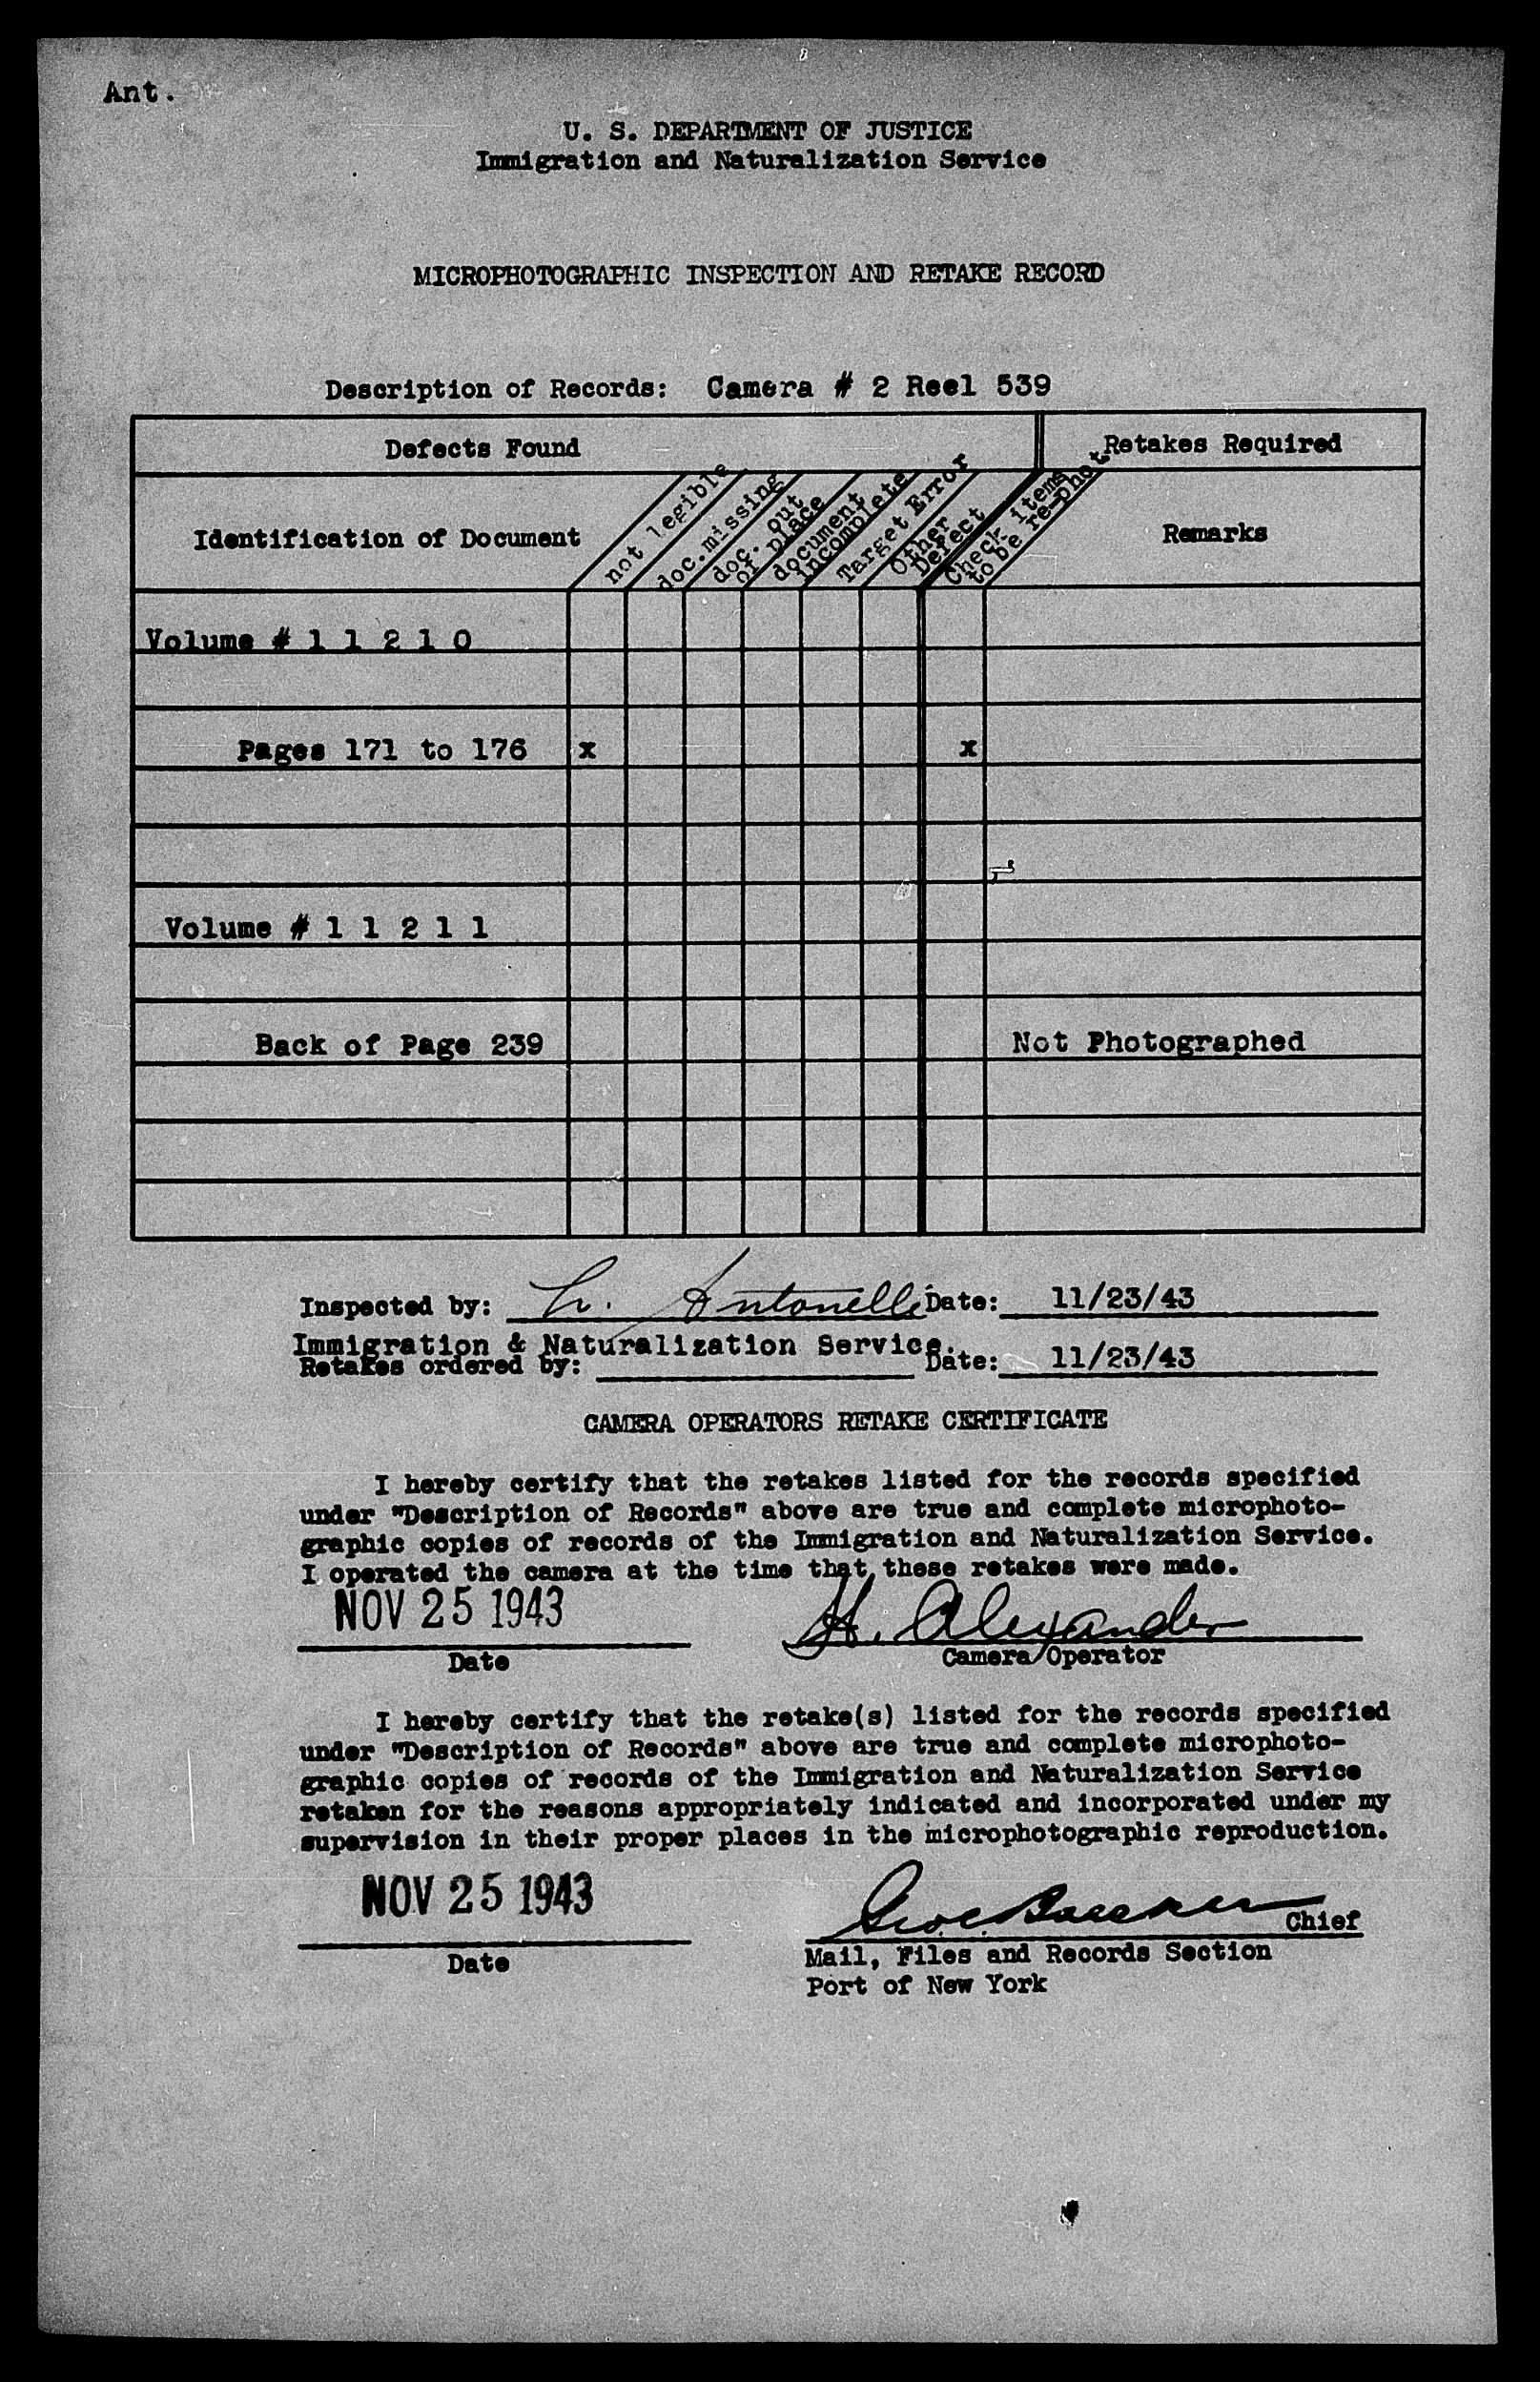 Ant.
U. S. DEPARTMENT OF JUSTICE
Immigration and Naturalization Service
MICROPHOTOGRAPHIC INSPECTION AND RETAKE RECORD
Description of Records: Camera # 2 Reel 539
Defects Found
Retakes Required
Identification of Document
not legible
doc. missing
doc. out
of place
document
incomplete
Target Error
Other
Defect
Check items
to be re-phot.
Remarks
Volume # 1 1 2 1 0
Pages 171 to 176 x x
Volume # 1 1 2 1 1
Back of Page 239 Not Photographed
Inspected by: L. Antonelli Date: 11/23/43
Immigration & Naturalization Service.
Retakes ordered by: Date: 11/23/43
CAMERA OPERATORS RETAKE CERTIFICATE
I hereby certify that the retakes listed for the records specified
under "Description of Records" above are true and complete microphoto-
graphic copies of records of the Immigration and Naturalization Service.
I operated the camera at the time that these retakes were made.
NOV 25 1943 H. Alexander
Date Camera Operator
I hereby certify that the retake(s) listed for the records specified
under "Description of Records" above are true and complete microphoto-
graphic copies of records of the Immigration and Naturalization Service
retaken for the reasons appropriately indicated and incorporated under my
supervision in their proper places in the microphotographic reproduction.
NOV 25 1943
Chief
Date
Mail, Files and Records Section
Port of New York